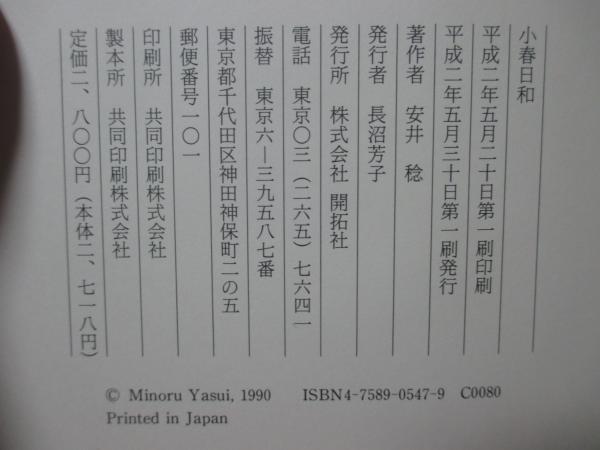 小春日和
平成二年五月二十日第一刷印刷
平成二年五月三十日第一刷発行
著作者 安井 稔
発行者 長沼芳子
発行所 株式会社 開拓社
電話 東京〇三(二六五)七六四一
振替 東京六―三九五八七番
東京都千代田区神田神保町二の五
郵便番号一〇一
印刷所 共同印刷株式会社
製本所 共同印刷株式会社
定価二、八〇〇円(本体二、七一八円)
© Minoru Yasui, 1990 ISBN4-7589-0547-9 C0080
Printed in Japan